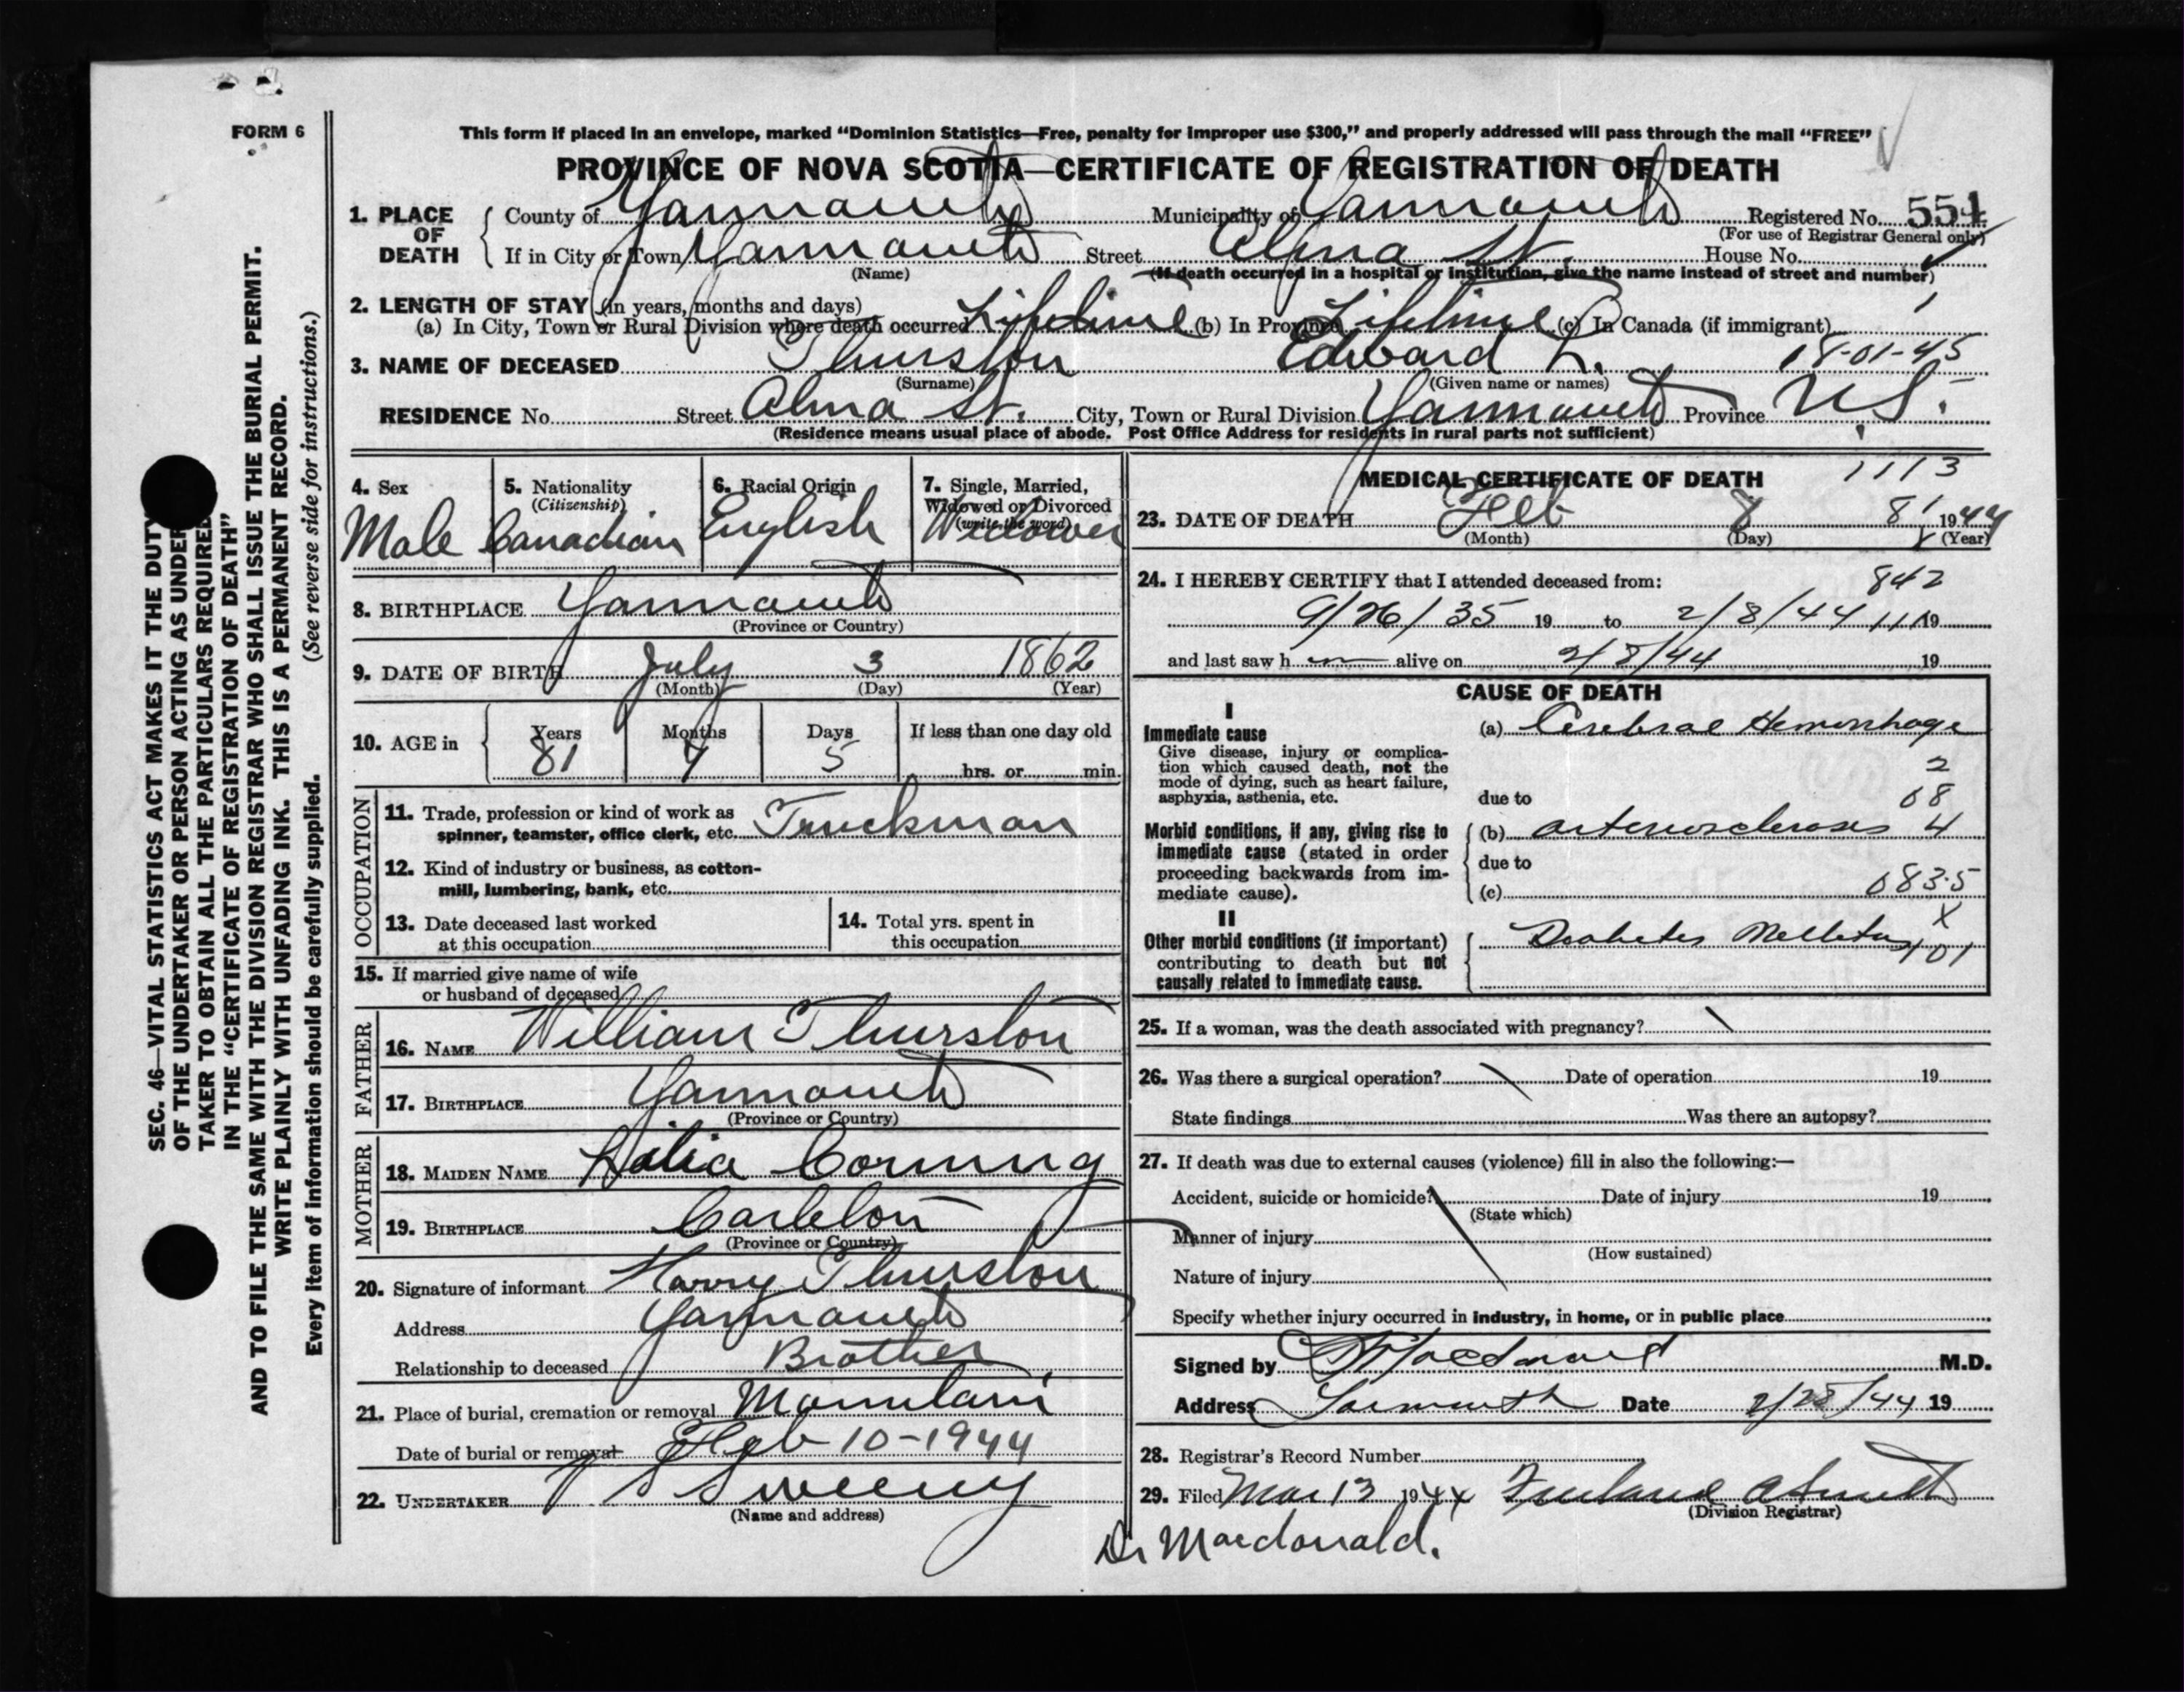 FORM 6
This form if placed in an envelope, marked "Dominion Statistics—Free, penalty for improper use $300," and properly addressed will pass through the mail "FREE"
PROVINCE OF NOVA SCOTIA—CERTIFICATE OF REGISTRATION OF DEATH
1. PLACE OF DEATH County of Yarmouth Municipality of Yarmouth Registered No. 554
(For use of Registrar General only)
If in City or Town Yarmouth Street Alma St. House No.
(Name) (If death occurred in a hospital or institution, give the name instead of street and number)
2. LENGTH OF STAY (in years, months and days)
(a) In City, Town or Rural Division where death occurred Lifetime (b) In Province Lifetime (c) In Canada (if immigrant)
3. NAME OF DECEASED Thurston Edward L. 18-01-45
(Surname) (Given name or names)
RESIDENCE No. Street Alma St. City, Town or Rural Division Yarmouth Province N.S.
(Residence means usual place of abode. Post Office Address for residents in rural parts not sufficient)
4. Sex 5. Nationality 6. Racial Origin 7. Single, Married,
(Citizenship) Widowed or Divorced
(write the word)
Male Canadian English Widower
8. BIRTHPLACE Yarmouth
(Province or Country)
9. DATE OF BIRTH July 3 1862
(Month) (Day) (Year)
10. AGE in Years Months Days If less than one day old
81 5
hrs. or min.
OCCUPATION
11. Trade, profession or kind of work as
spinner, teamster, office clerk, etc. Truckman
12. Kind of industry or business, as cotton-
mill, lumbering, bank, etc.
13. Date deceased last worked
at this occupation
14. Total yrs. spent in
this occupation
15. If married give name of wife
or husband of deceased
FATHER
16. NAME William Thurston
17. BIRTHPLACE Yarmouth
(Province or Country)
MOTHER
18. MAIDEN NAME Corning
19. BIRTHPLACE Carleton
(Province or Country)
20. Signature of informant Harry Thurston
Address Yarmouth
Relationship to deceased Brother
21. Place of burial, cremation or removal
Date of burial or removal Feb 10-1944
22. UNDERTAKER V S Sweeny
(Name and address)
MEDICAL CERTIFICATE OF DEATH 1113
23. DATE OF DEATH Feb 8 1944
(Month) (Day) (Year)
24. I HEREBY CERTIFY that I attended deceased from: 842
9/26/35 19 to 2/8/44 19
and last saw h alive on 2/8/44 19
CAUSE OF DEATH
I
Immediate cause (a) Cerebral Hemorrhage
Give disease, injury or complica-
tion which caused death, not the
mode of dying, such as heart failure,
asphyxia, asthenia, etc. due to
2
08
4
Morbid conditions, if any, giving rise to (b) arteriosclerosis
immediate cause (stated in order
proceeding backwards from im- due to
mediate cause). (c) 083.5
II
Other morbid conditions (if important) Diabetes Mellitus X 101
contributing to death but not
causally related to immediate cause.
25. If a woman, was the death associated with pregnancy?
26. Was there a surgical operation? Date of operation 19
State findings Was there an autopsy?
27. If death was due to external causes (violence) fill in also the following:—
Accident, suicide or homicide? Date of injury 19
(State which)
Manner of injury
(How sustained)
Nature of injury
Specify whether injury occurred in industry, in home, or in public place
Signed by Macdonald M.D.
Address Yarmouth Date 2/28/44 19
28. Registrar's Record Number
29. Filed Mar 13 1944
(Division Registrar)
Dr Macdonald.
SEC. 46—VITAL STATISTICS ACT MAKES IT THE DUTY
OF THE UNDERTAKER OR PERSON ACTING AS UNDER
TAKER TO OBTAIN ALL THE PARTICULARS REQUIRED
IN THE "CERTIFICATE OF REGISTRATION OF DEATH"
AND TO FILE THE SAME WITH THE DIVISION REGISTRAR WHO SHALL ISSUE THE BURIAL PERMIT.
WRITE PLAINLY WITH UNFADING INK. THIS IS A PERMANENT RECORD.
Every item of information should be carefully supplied. (See reverse side for instructions.)